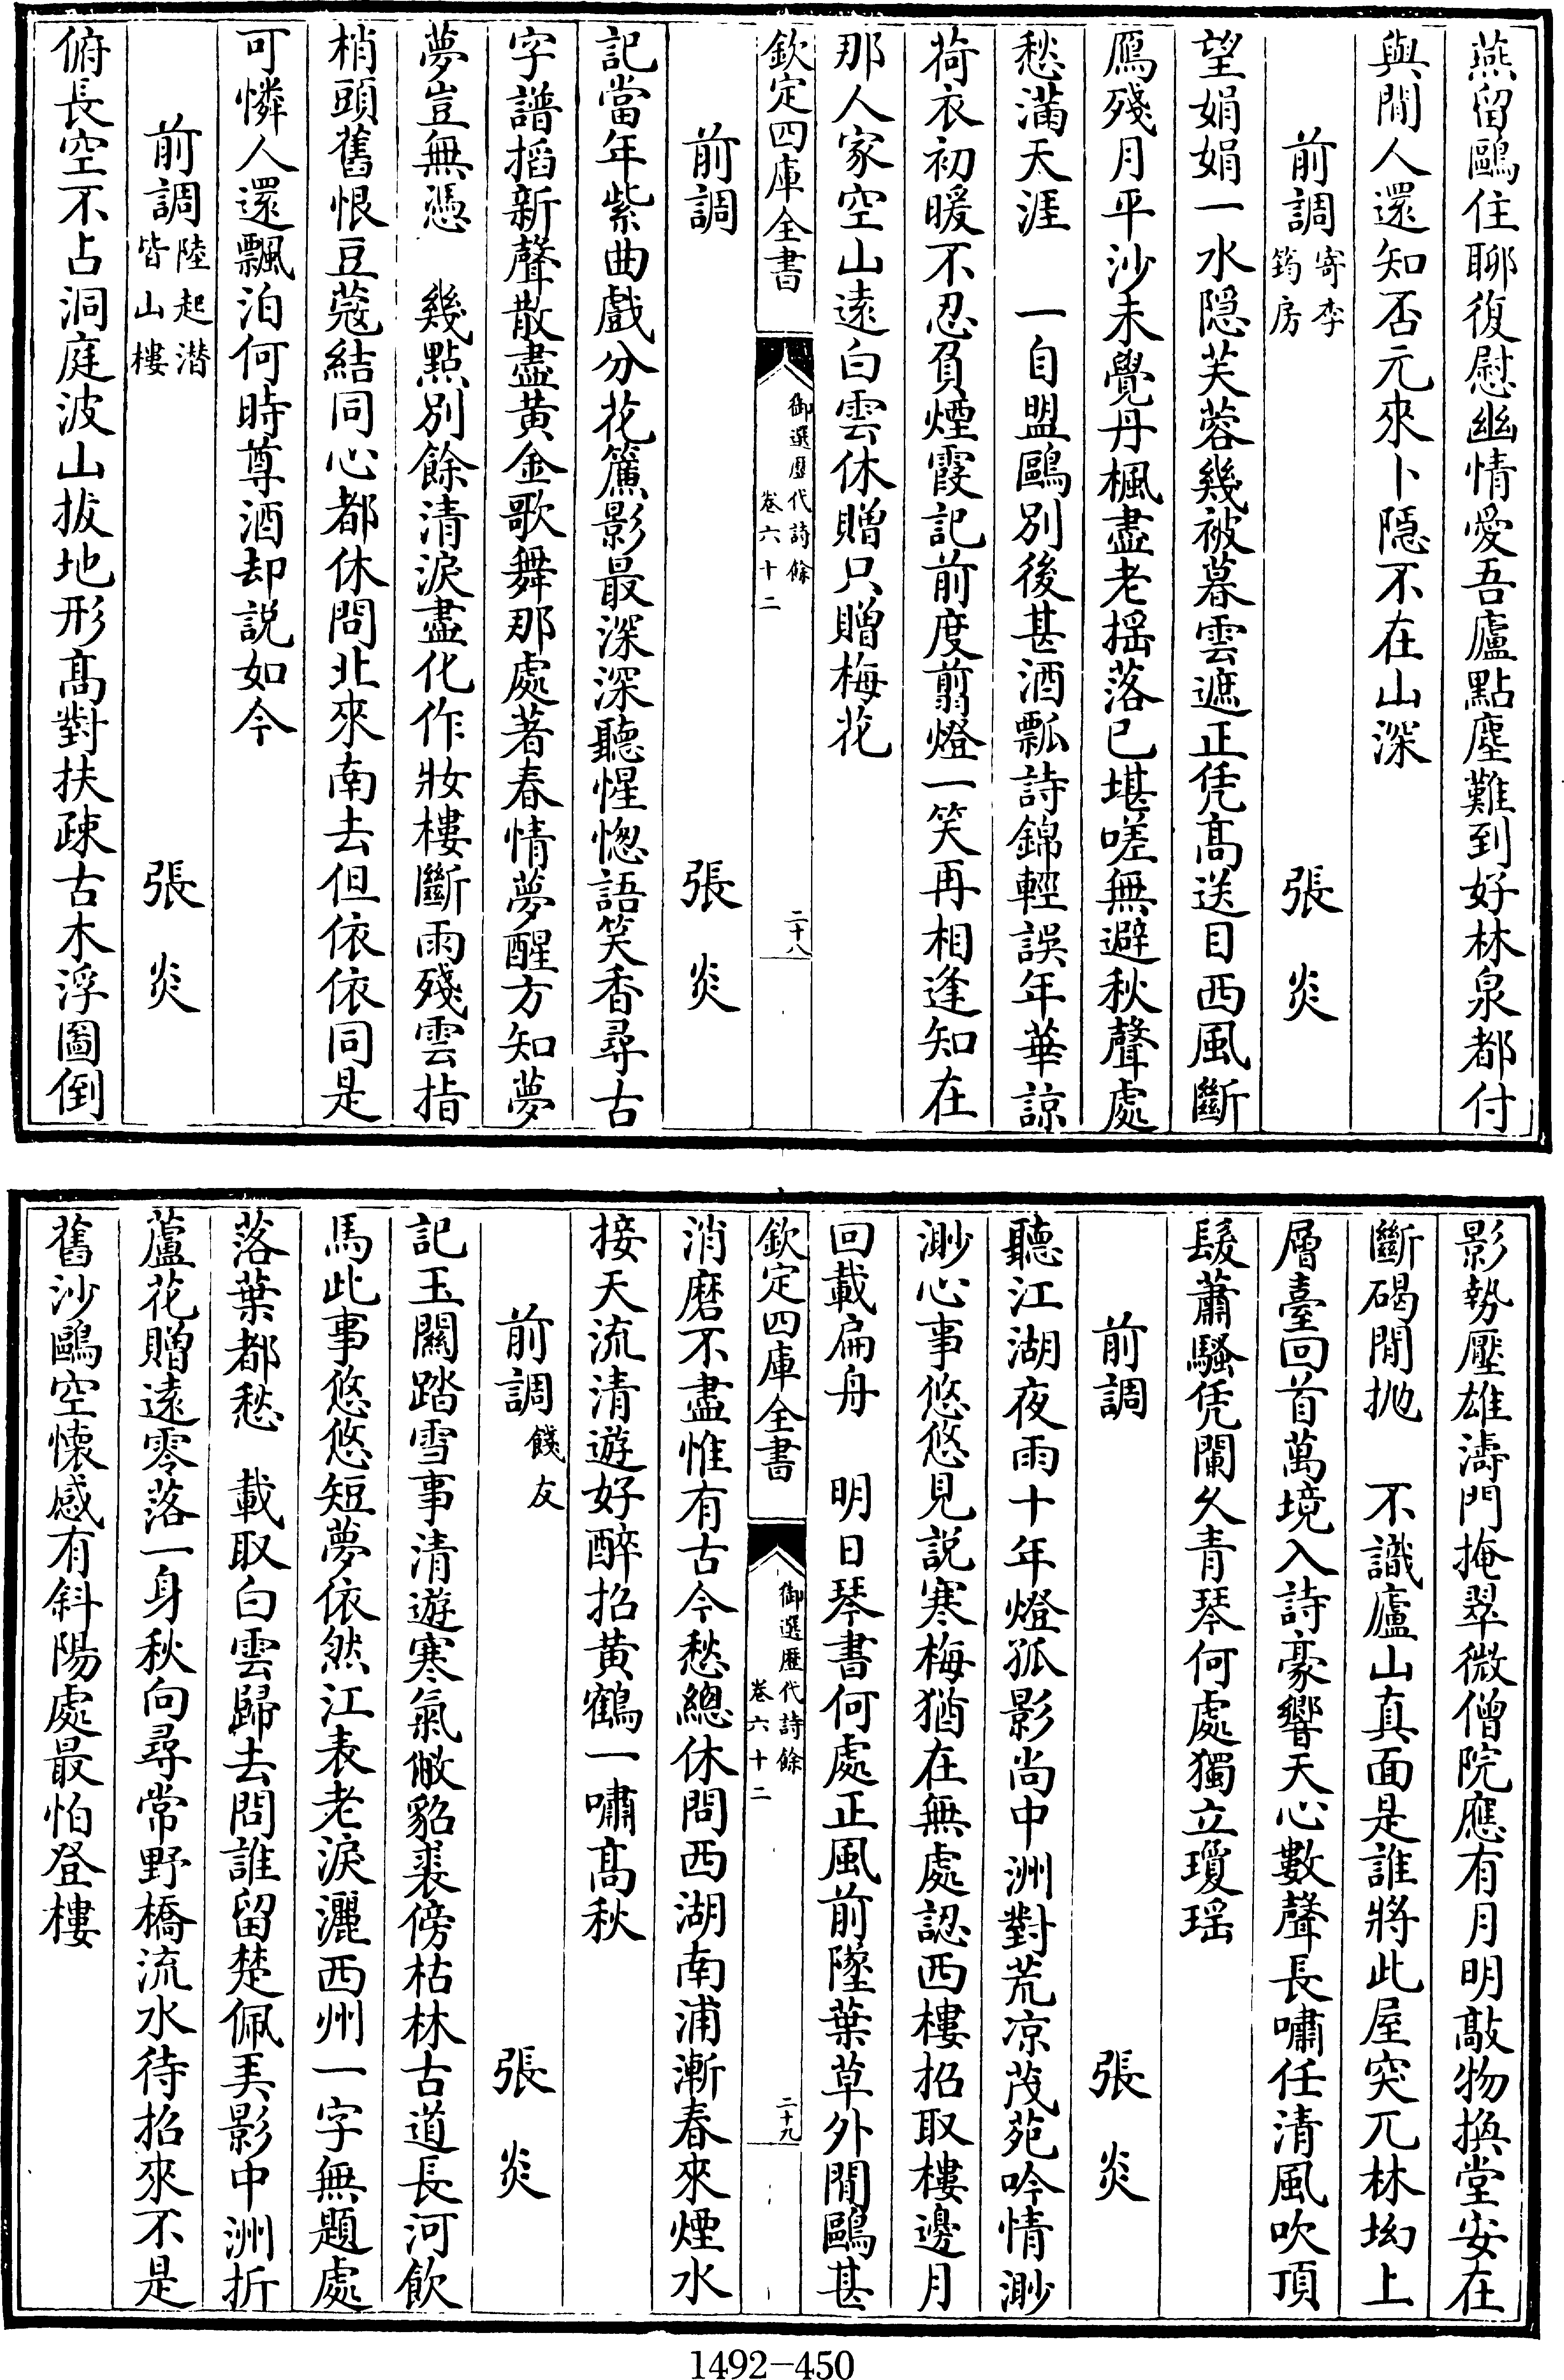 燕留鷗住聊復慰幽情愛吾廬點塵難到好林泉都付
與閒人還知否元來卜隱不在山深
前調寄李筠房　張炎
望娟娟一水隱芙蓉幾被暮雲遮正凭髙送目西風斷
鴈殘月平沙未覺丹楓盡老搖落已堪嗟無避秋聲處
愁滿天涯　一自盟鷗別後甚酒瓢詩錦輕誤年華諒
荷衣初暖不忍負煙霞記前度翦燈一笑再相逢知在
那人家空山遠白雲休贈只贈梅花
欽定四庫全書　御選歷代詩餘卷六十二　二十八
前調　張炎
記當年紫曲戲分花簾影最深深聽惺惚語笑香尋古
字譜搯新聲散盡黃金歌舞那處著春情夢醒方知夢
夢豈無憑　幾點別餘清淚盡化作妝樓斷雨殘雲指
梢頭舊恨豆蔻結同心都休問北來南去但依依同是
可憐人還飄泊何時尊酒却説如今
前調陸起潛皆山樓　張炎
俯長空不占洞庭波山拔地形髙對扶疎古木浮圖倒
影勢壓雄濤門掩翠微僧院應有月明敲物換堂安在
斷碣閒抛　不識廬山真面是誰將此屋突兀林坳上
層臺回首萬境入詩豪響天心數聲長嘯任清風吹頂
髮蕭騷凭闌久青琴何處獨立瓊瑶
前調　張炎
聽江湖夜雨十年燈孤影尚中洲對荒凉茂苑吟情渺
渺心事悠悠見説寒梅猶在無處認西樓招取樓邊月
回載扁舟　明日琴書何處正風前墜葉草外閒鷗甚
欽定四庫全書　御選歷代詩餘卷六十二　二十九
消磨不盡惟有古今愁總休問西湖南浦漸春來煙水
接天流清遊好醉招黃鶴一嘯髙秋
前調餞友　張炎
記玉關踏雪事清遊寒氣敝貂裘傍枯林古道長河飲
馬此事悠悠短夢依然江表老淚灑西州一字無題處
落葉都愁　載取白雲歸去問誰留楚佩弄影中洲折
蘆花贈遠零落一身秋向尋常野橋流水待招來不是
舊沙鷗空懷感有斜陽處最怕登樓
1492-450